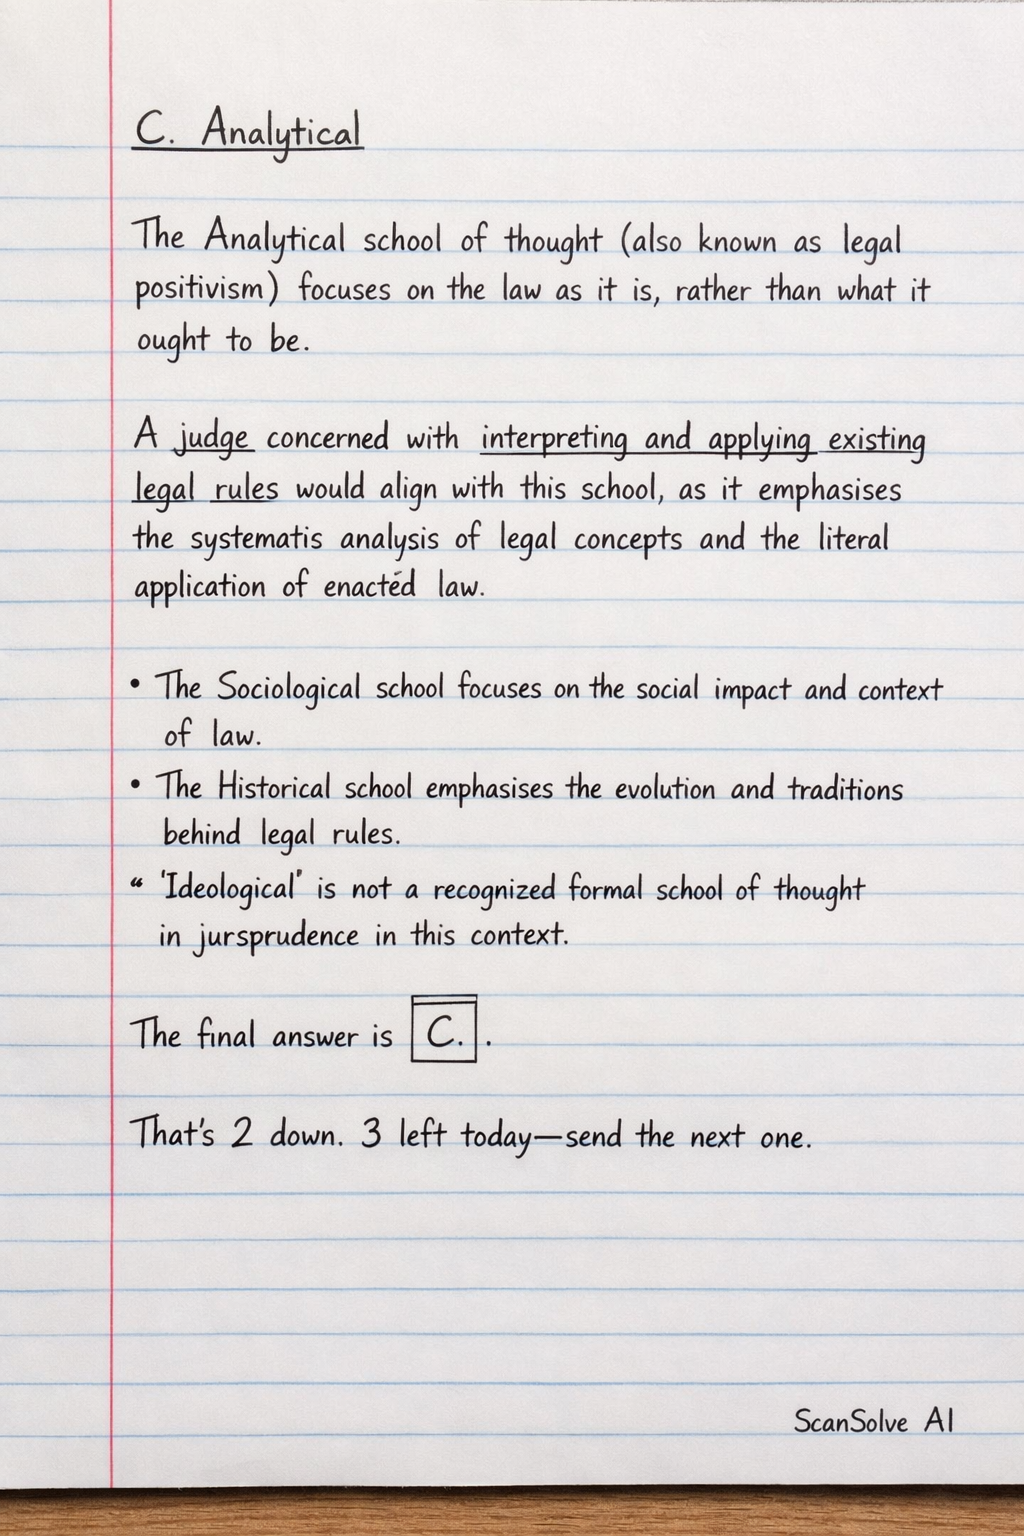 C. Analytical
The Analytical school of thought (also known as legal
positivism) focuses on the law as it is, rather than what it
ought to be.
A judge concerned with interpreting and applying existing
legal rules would align with this school, as it emphasises
the systematis analysis of legal concepts and the literal
application of enactéd law.
• The Sociological school focuses on the social impact and context
of law.
• The Historical school emphasises the evolution and traditions
behind legal rules.
“ 'Ideological' is not a recognized formal school of thought
in jursprudence in this context.
The final answer is C. .
That's 2 down. 3 left today—send the next one.
ScanSolve AI